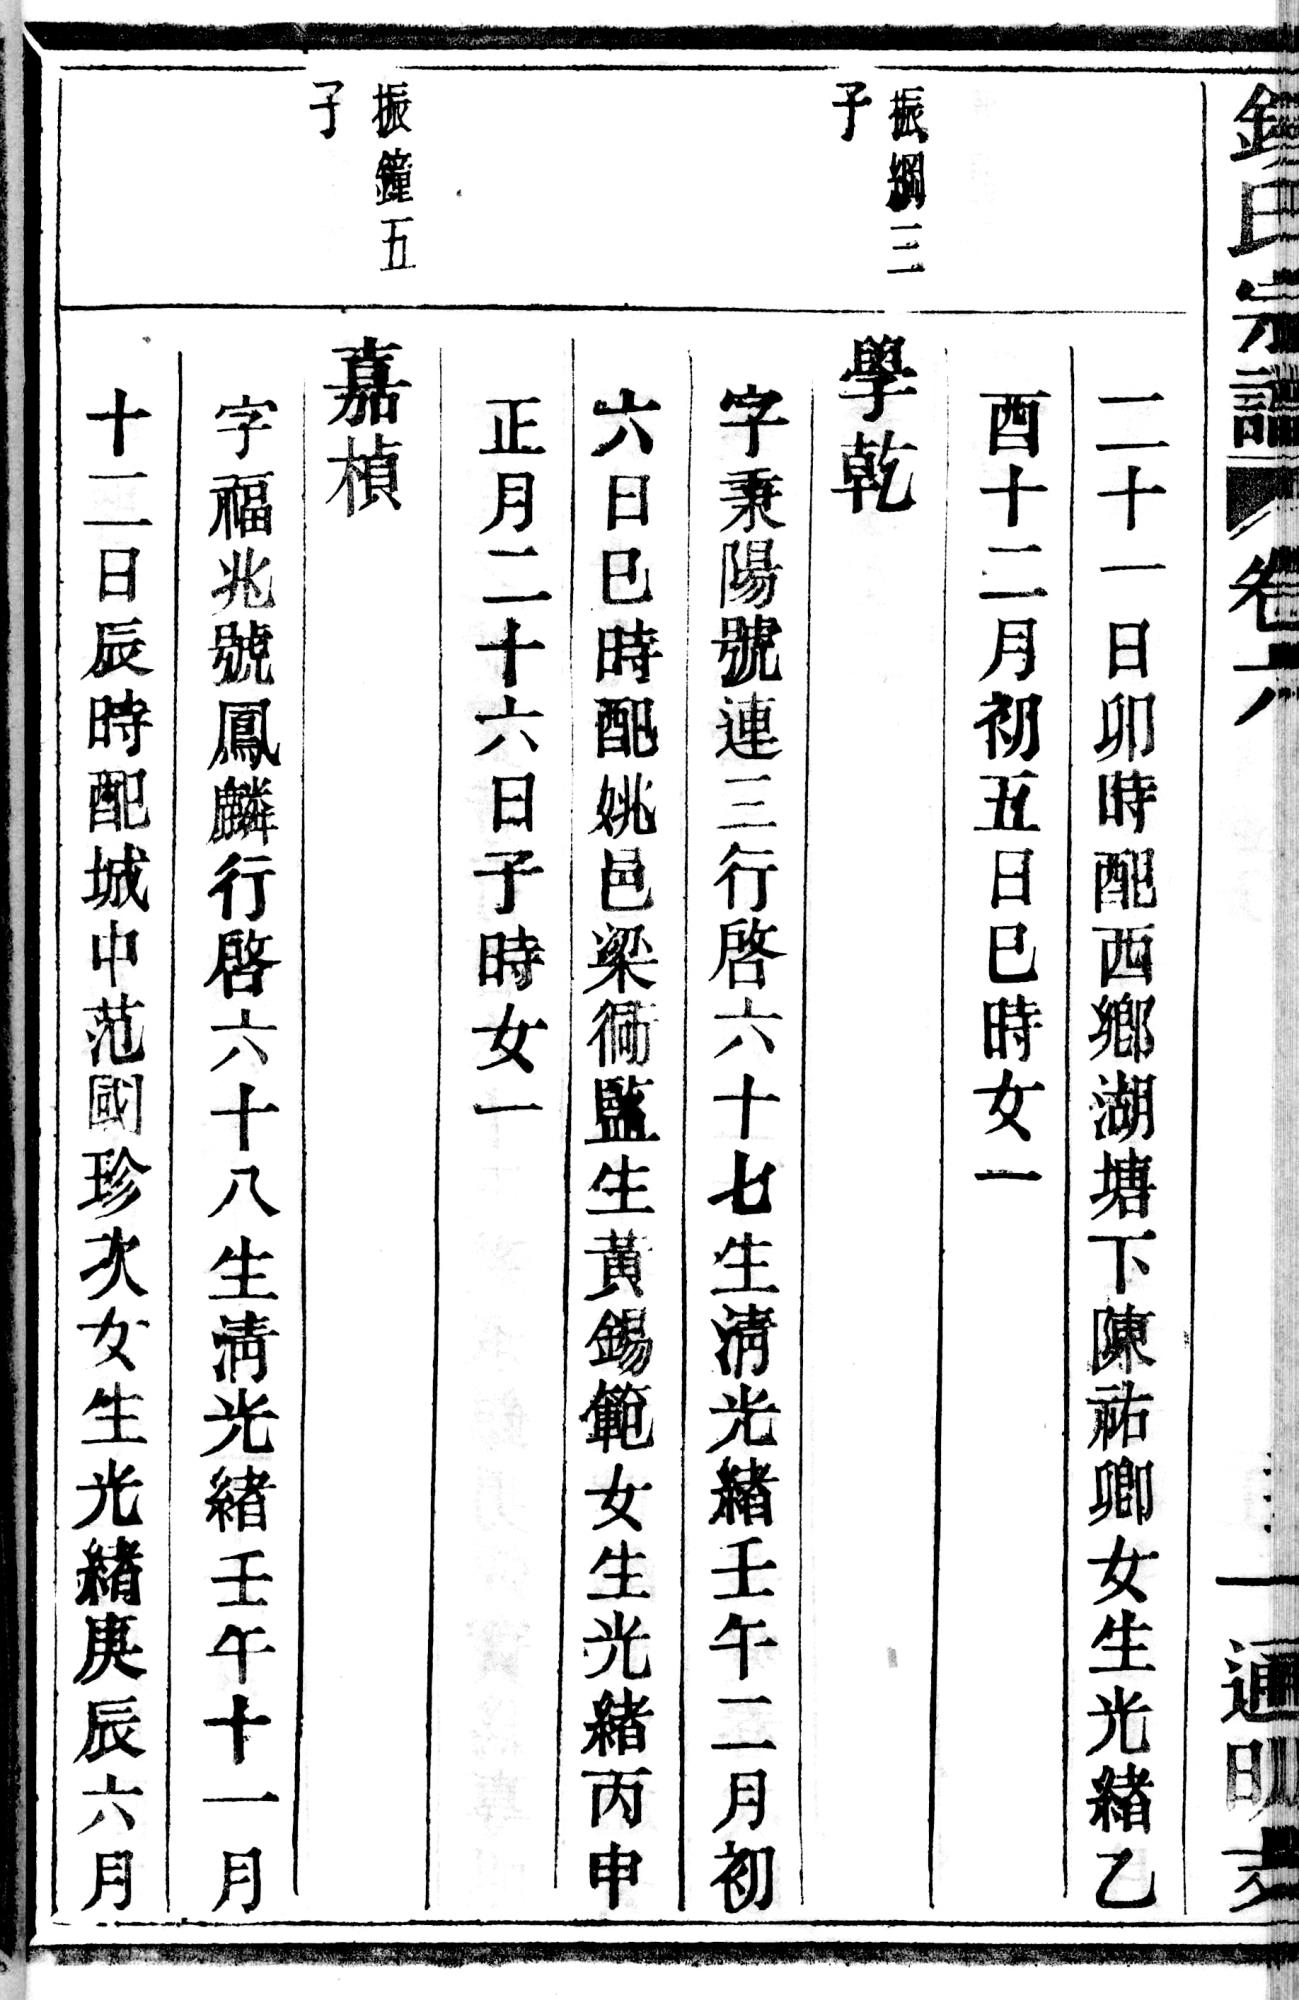 氏宗譜
卷六
一
通明
二十一日卯時配西鄉湖塘下陳祐卿女生光緒乙
酉十二月初五日巳時女一
振綱三
子
學乾
字秉陽號連三行啓六十七生淸光緒壬午二月初
六日巳時配姚邑梁衕監生黃錫範女生光緒丙申
正月二十六日子時女一
振鐘五
子
嘉楨
字福兆號鳳麟行啓六十八生淸光緒壬午十一月
十二日辰時配城中范國珍次女生光緒庚辰六月